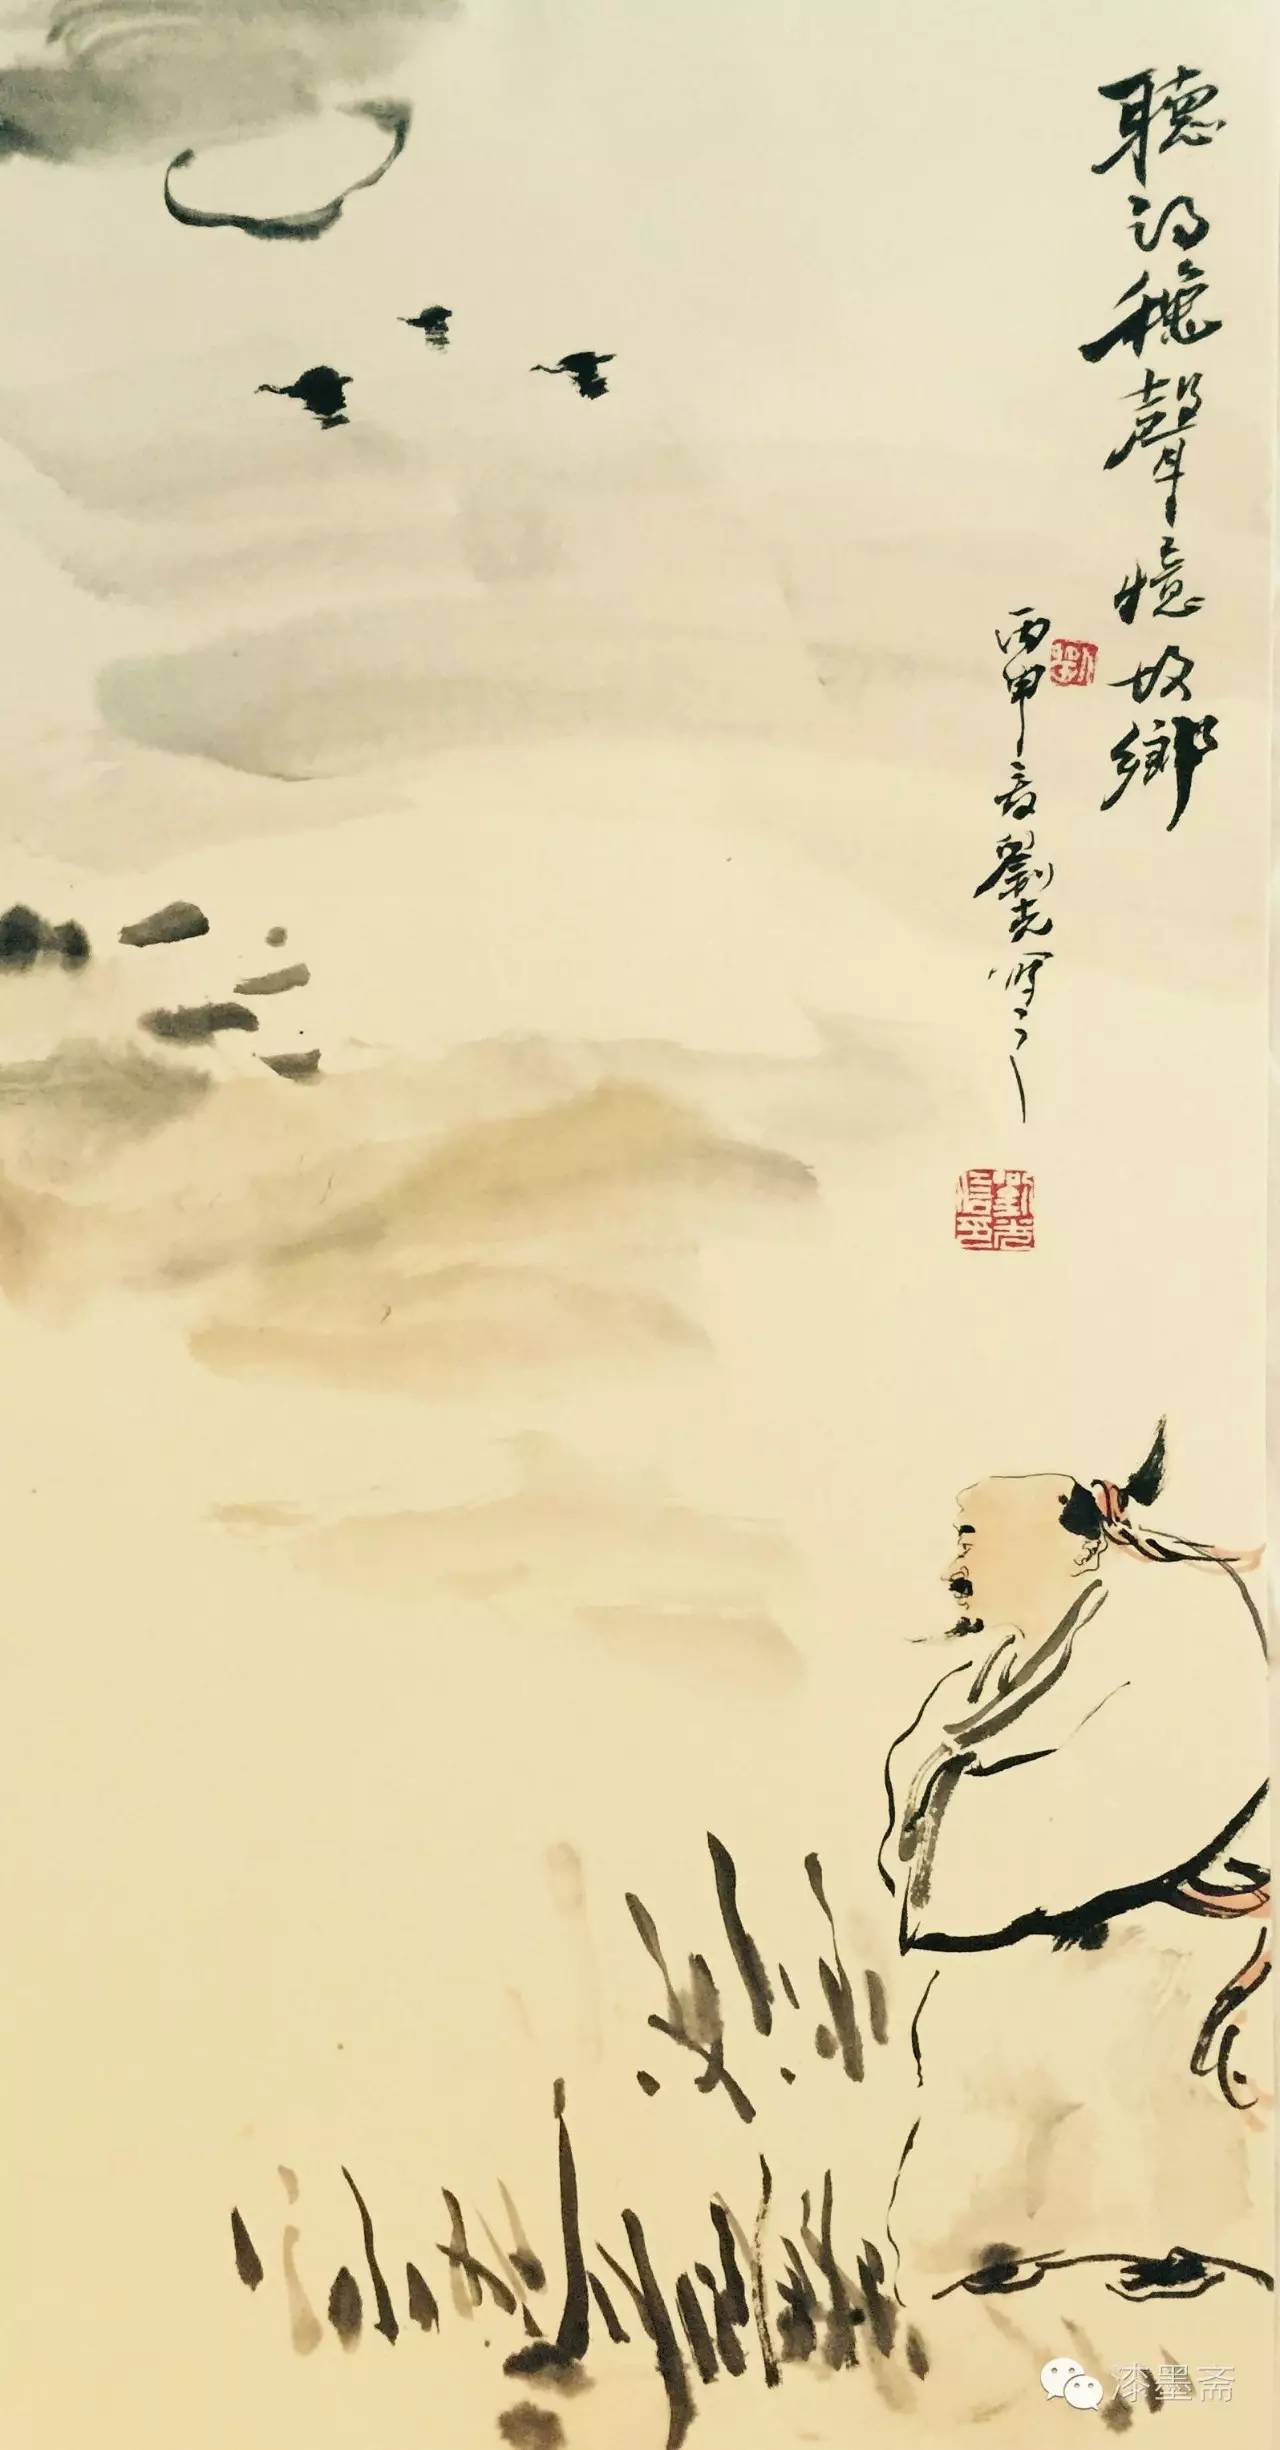 聽得穐聲憶故鄉
丙申夏劉光寫之
劉
劉光信印
漆墨斋